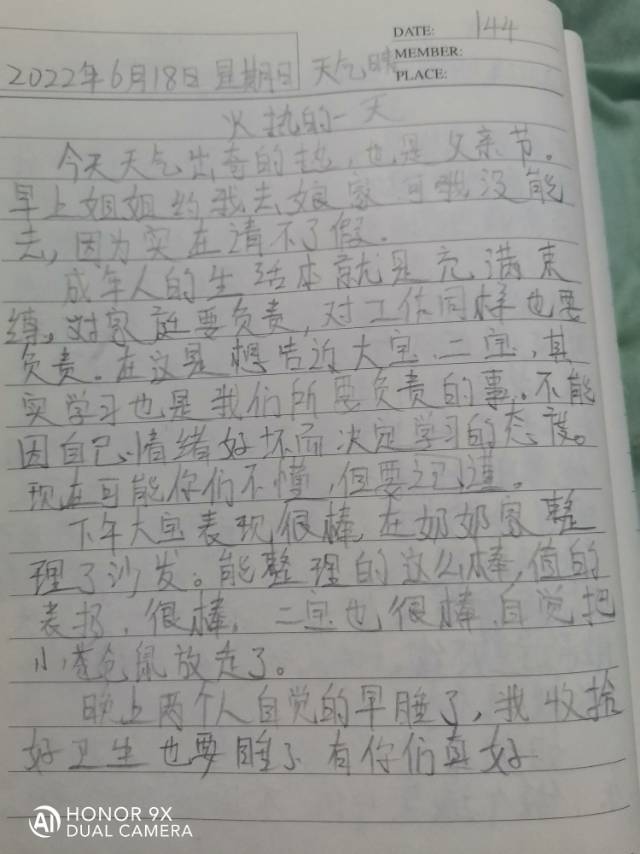 DATE: 144
MEMBER:
PLACE:
2022年6月18日 星期日 天气晴
火热的一天
今天天气出奇的热,也是父亲节。
早上姐姐约我去娘家,可我没能
去,因为实在请不了假。
成年人的生活本就是充满束
缚,对家庭要负责,对工作同样也要
负责。在这是想告诉大宝、二宝,其
实学习也是我们所要负责的事。不能
因自己情绪好坏而决定学习的态度。
现在可能你们不懂,但要记谨。
下午大宝表现很棒,在奶奶家整
理了沙发。能整理的这么棒,值的
表扬,很棒,二宝也很棒,自觉把
小苍仓鼠放走了。
晚上两个人自觉的早睡了,我收拾
好卫生也要睡了 有你们真好
HONOR 9X
DUAL CAMERA